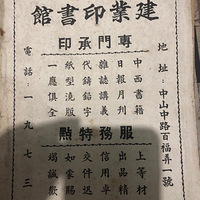 建業印書館
專門承印
地址：中山中路百福弄一號
中西書籍
日報月刊
雜誌講義
代鑄鉛字
紙型澆版
一應俱全
服務特點
上等材
出品精
信用卓
交件迅
如蒙賜
竭誠歡
電話：一九七三